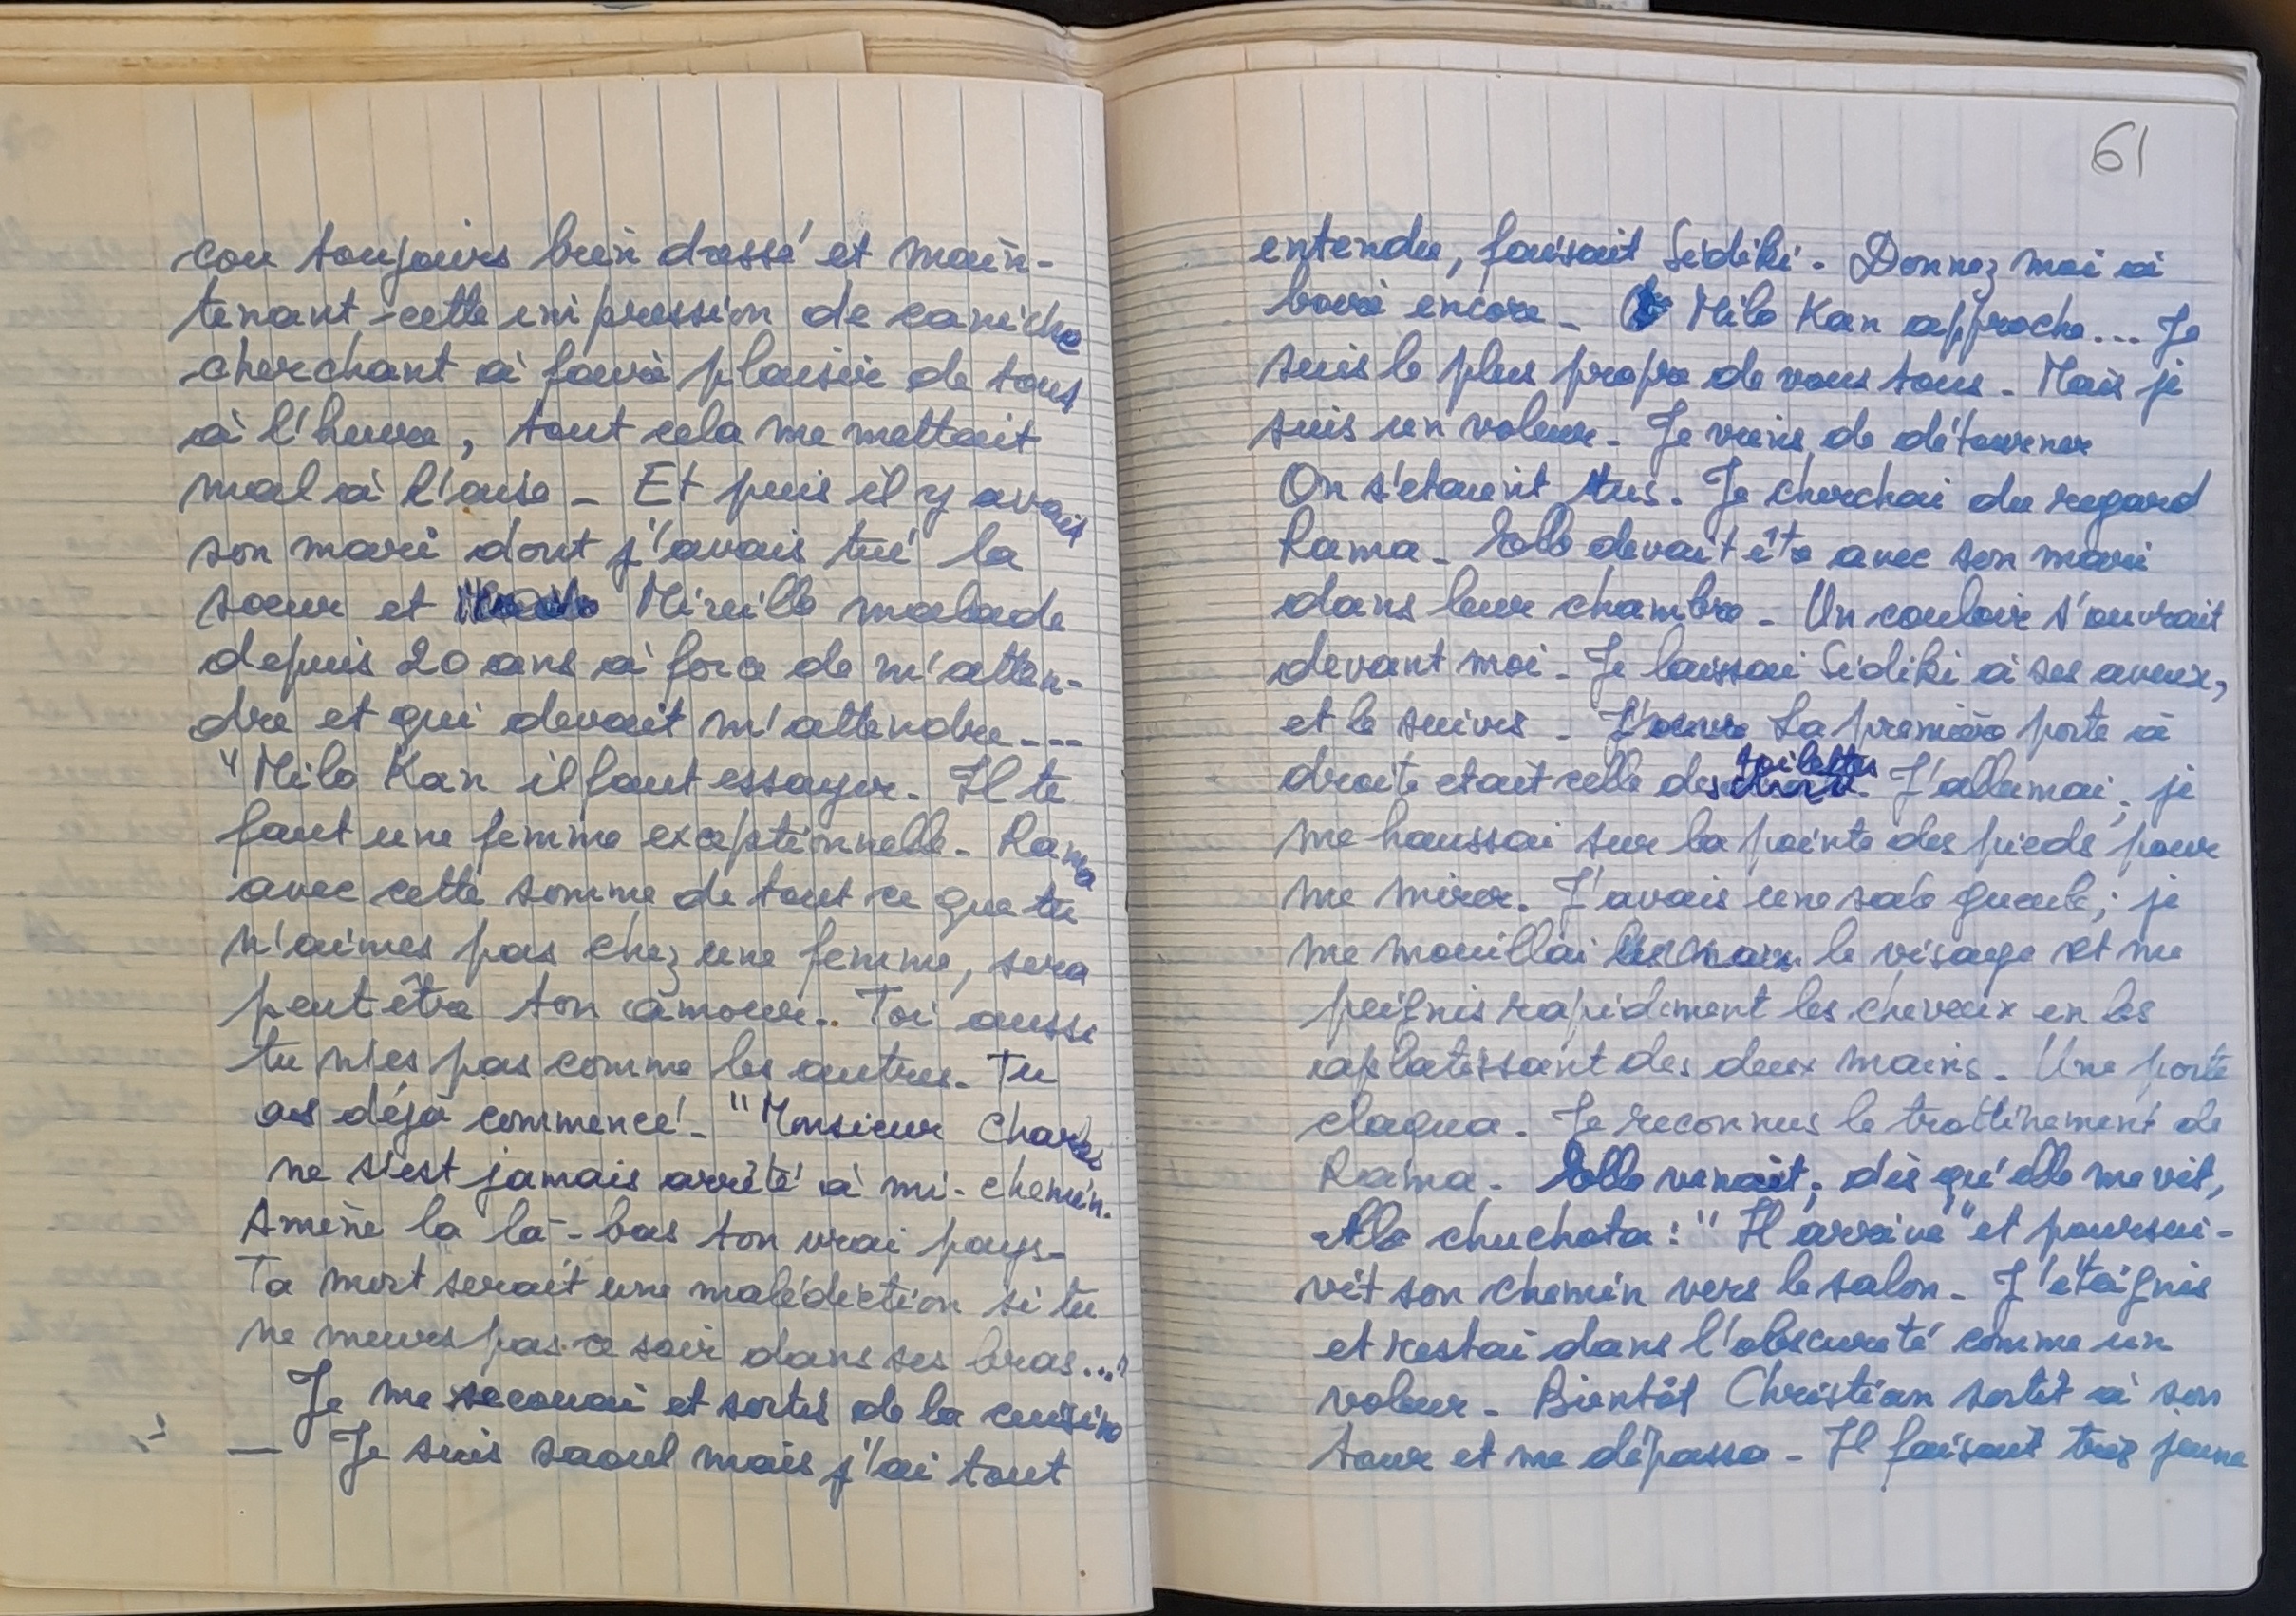 cou toujours bien dressé et main-
tenant, cette impression de caniche
cherchant à faire plaisir de tout
à l'heure, tout cela me mettait
mal à l'aise - Et puis il y avait
son mari dont j'avais tué la
soeur et Mireille malade
depuis 20 ans à force de m'atten-
dre et qui devait m'attendre....
"Milo Kan il faut essayer. Il te
faut une femme exceptionnelle. Rama
avec cette somme de tout ce que tu
n'aimes pas chez une femme, sera
peut être ton amour.. Toi aussi
tu n'es pas comme les autres. Tu
as déjà commencé. "Monsieur Charles
ne s'est jamais arrêté à mi-chemin.
Amène la là-bas ton vrai pays-
Ta mort serait une malédiction si tu
ne meurs pas ce soir dans ses bras..."
Je me secouai et sortis de la cuisine
— Je suis saoul mais j'ai tout
61
entendu, faisait Sidiki. Donnez moi à
boire encore - Milo Kan approche... Je
suis le plus propre de vous tous. Mais je
suis un voleur. Je viens de détourner
On s'etaient tus. Je cherchai du regard
Rama. Elle devait être avec son mari
dans leur chambre. Un couloir s'ouvrait
devant moi. Je laissai Sidiki à ses aveux,
et le suivis. La première porte à
droite etait celle des toilettes. J'allumai; je
me haussai sur la pointe des pieds pour
me mirer. J'avais une sale gueule; je
me mouillai le visage et me
peignis rapidement les cheveux en les
aplatissant des deux mains. Une porte
claqua. Je reconnus le trottinement de
Rama. Elle venait; dès qu'elle me vit,
elle chuchota: "Il arrive" et poursui-
vit son chemin vers le salon. J'éteignis
et restai dans l'obscurité comme un
voleur. Bientôt Christian sortit à son
tour et me dépassa - Il faisait très jeune